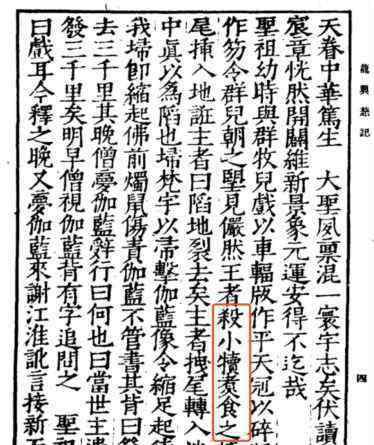 龍興慈記
四
天眷中華篤生 大聖夙稟混一寰宇志矣伏讀
宸章恍然開闢維新景象元運安得不迄哉
聖祖幼時與群牧兒戲以車輻版作平天冠以碎
作笏令群兒朝之望見儼然王者殺小犢煑食之
尾揷入地誑主者曰陷地裂去矣主者拽尾轉入
中真以為陷也埽梵宇以帚擊伽藍像令縮足起
我埽卽縮起佛前燭鼠傷責伽藍不管書其背曰
去三千里其晚僧夢伽藍辭行曰何也曰當世主
發三千里矣明早僧視伽藍背有字追問之 聖
曰戲耳今釋之晚又夢伽藍來謝江淮訛言接新